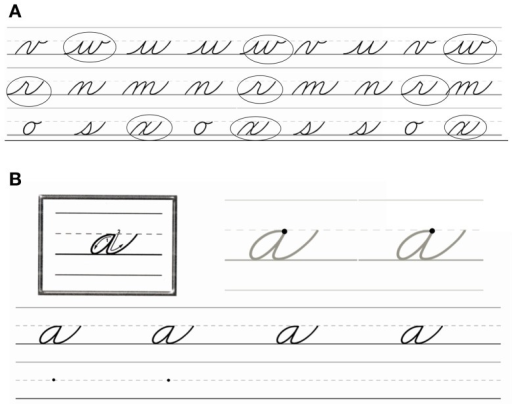 A
v w u u w v u v w
r n m n r m n r m
o s x o x s s o x
B
a a a
a a a a